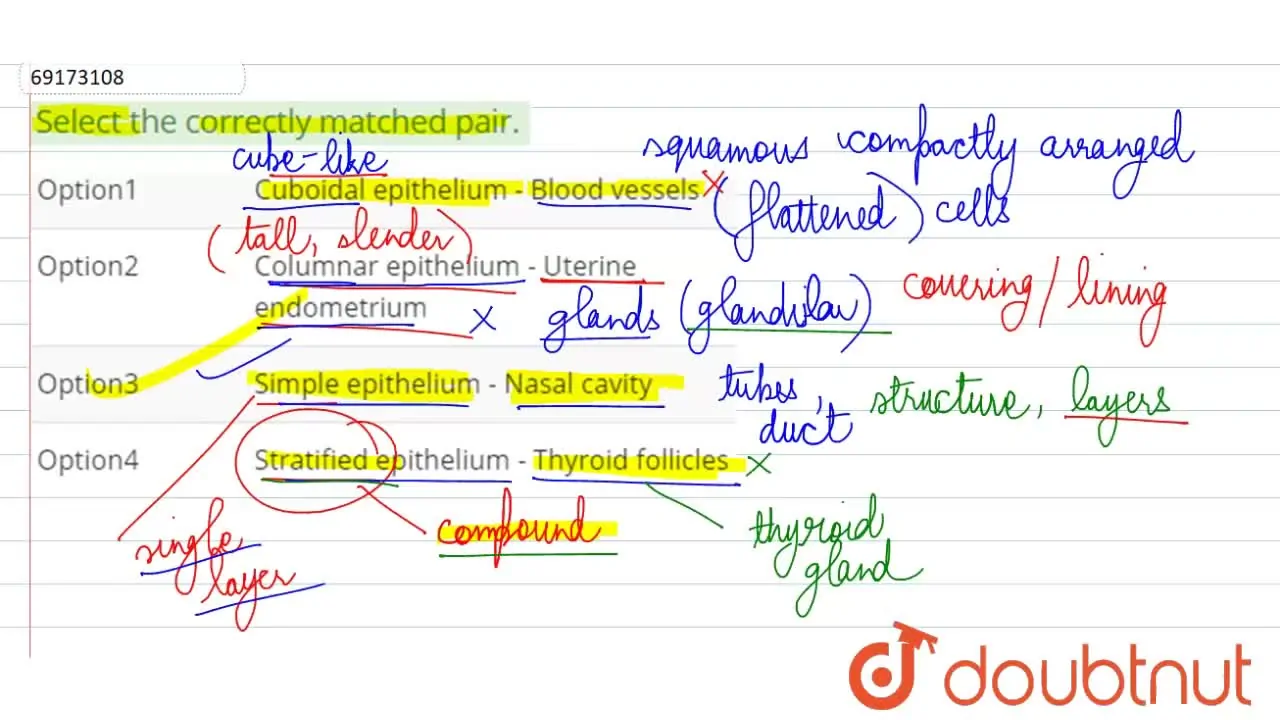 69173108
Select the correctly matched pair.
cube-like
squamous compactly arranged
Option1 Cuboidal epithelium - Blood vessels X (flattened) cells
(tall, slender)
Option2 Columnar epithelium - Uterine
endometrium X glands (glandular) covering/lining
Option3 Simple epithelium - Nasal cavity
tubes, duct structure, layers
Option4 Stratified epithelium - Thyroid follicles X
single layer
compound
thyroid gland
doubtnut